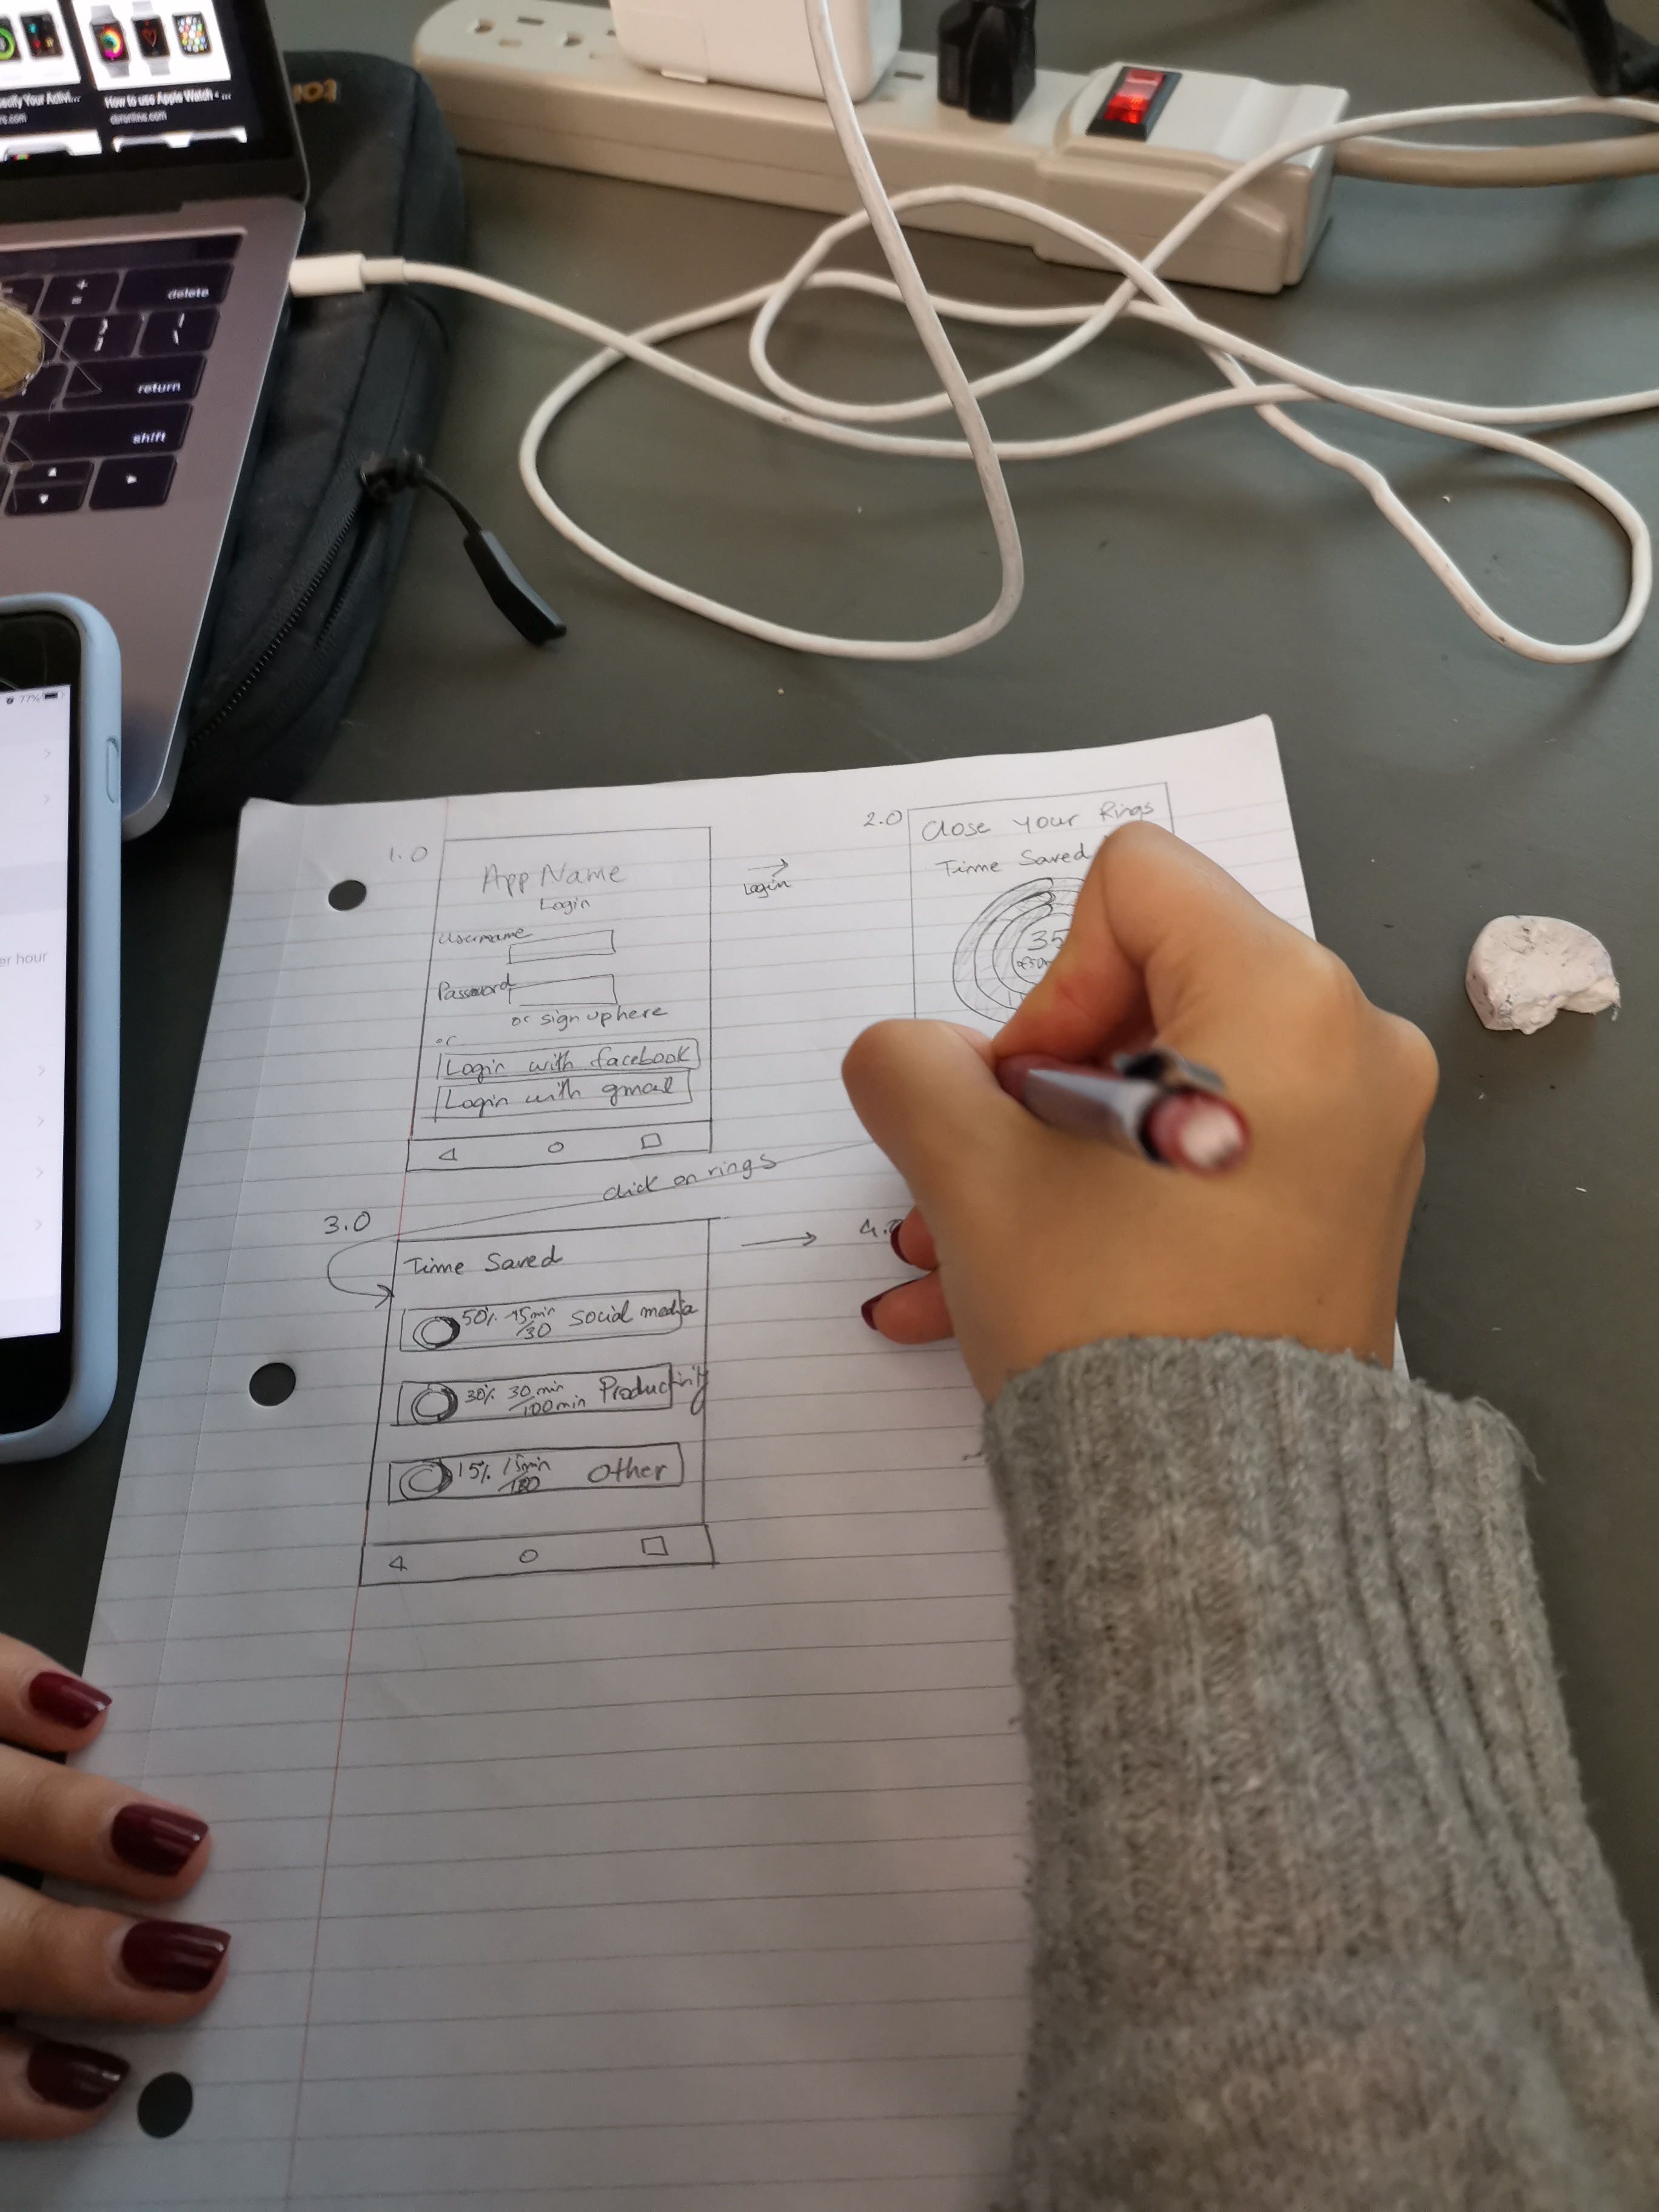 How to use Apple Watch - ...
delete
return
shift
77%
er hour
1.0
App Name
Login
Username
Password
or sign up here
or
Login with facebook
Login with gmail
Login
2.0
Close Your Rings
Time Saved
35
click on rings
3.0
Time Saved
50% 15min/30 social media
30% 30 min/100min Productivity
15% 15min/100 Other
4.0